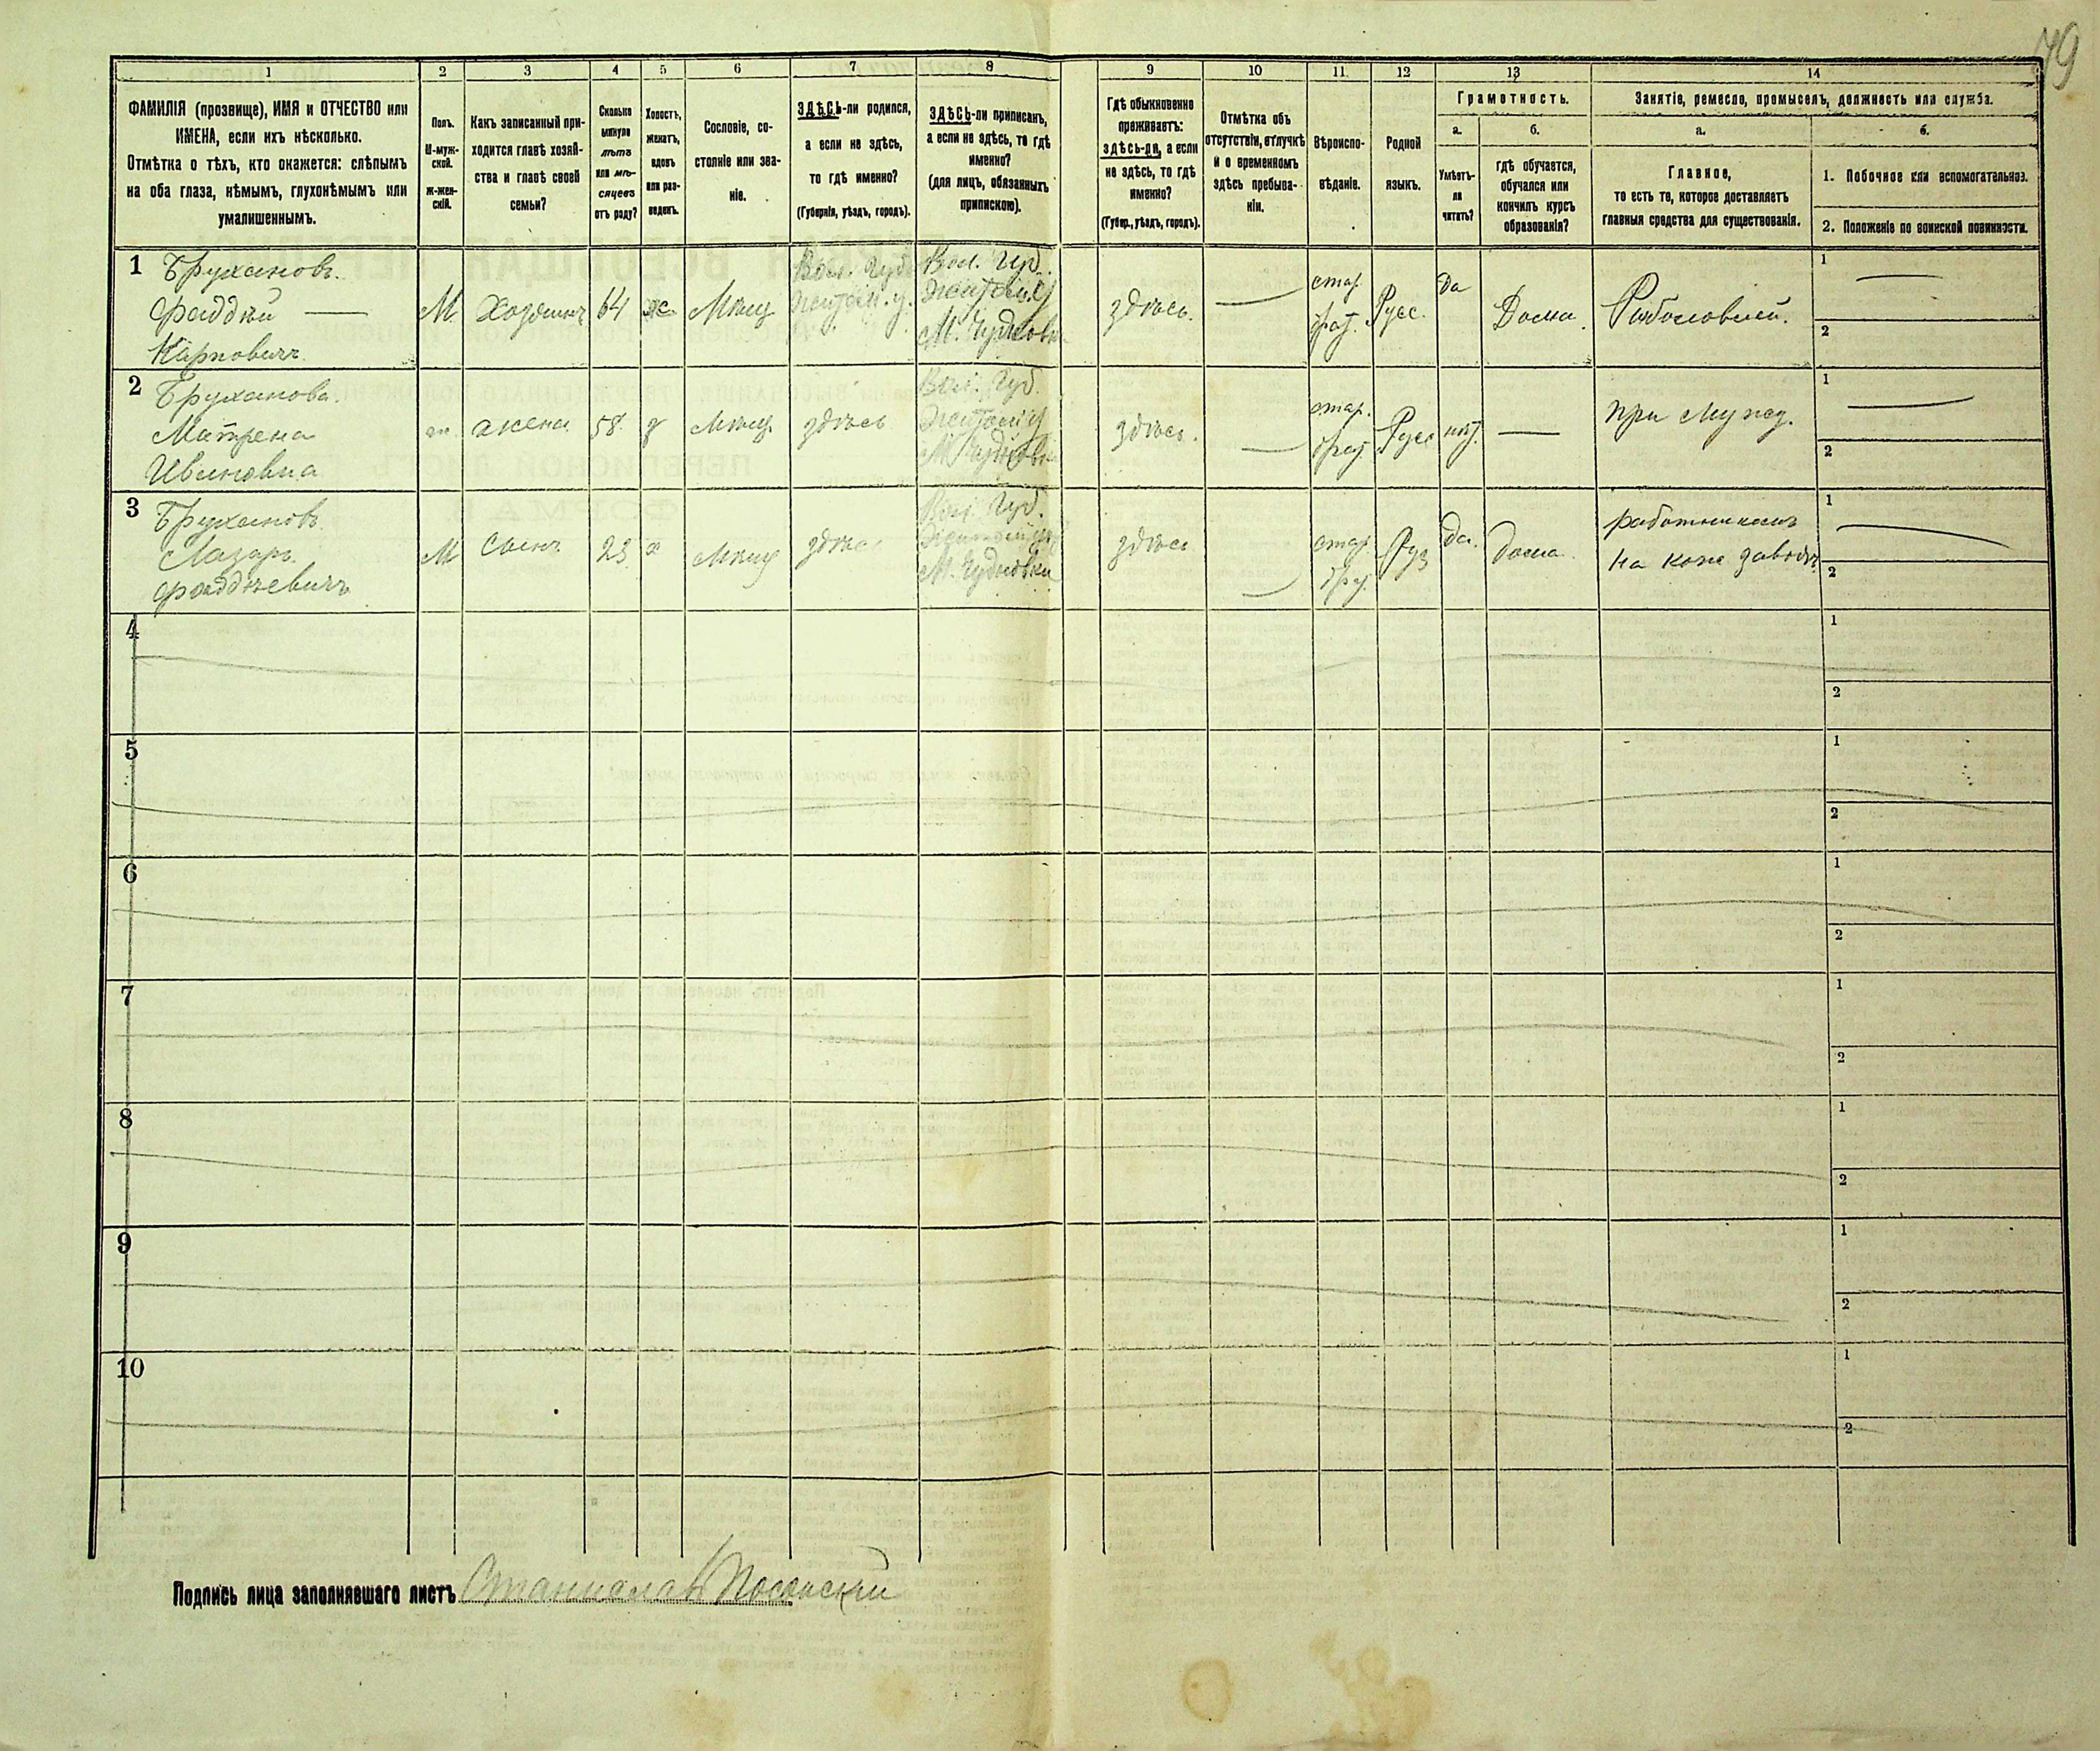 79
1
2
3
4
5
6
7
8
9
10
11.
12
13
14
ФАМИЛІЯ (прозвище), ИМЯ и ОТЧЕСТВО или
ИМЕНА, если ихъ нѣсколько.
Отмѣтка о тѣхъ, кто окажется: слѣпымъ
на оба глаза, нѣмымъ, глухонѣмымъ или
умалишеннымъ.
Полъ.
М-муж-
ской.
Ж-жен-
скій.
Какъ записанный при-
ходится главѣ хозяй-
ства и главѣ своей
семьи?
Сколько
минуло
лѣтъ
или мѣ-
сяцевъ
отъ роду?
Холостъ,
женатъ,
вдовъ
или раз-
веденъ.
Сословіе, со-
стояніе или зва-
ніе.
ЗДѢСЬ-ли родился,
а если не здѣсь,
то гдѣ именно?
(Губернія, уѣздъ, городъ).
ЗДѢСЬ-ли приписанъ,
а если не здѣсь, то гдѣ
именно?
(для лицъ, обязанныхъ
припискою).
Гдѣ обыкновенно
проживаетъ:
здѣсь-ли, а если
не здѣсь, то гдѣ
именно?
(Губер., уѣздъ, городъ).
Отмѣтка объ
отсутствіи, отлучкѣ
и о временномъ
здѣсь пребыва-
ніи.
Вѣроиспо-
вѣданіе.
Родной
языкъ.
Грамотность.
а.
б.
Умѣетъ-
ли
читать?
гдѣ обучается,
обучался или
кончилъ курсъ
образованія?
Занятіе, ремесло, промыселъ, должность или служба.
а.
б.
Главное,
то есть то, которое доставляетъ
главныя средства для существованія.
1. Побочное или вспомогательное.
2. Положеніе по воинской повинности.
1
Бруханов.
Фаддѣй
Карповичъ
М.
Хозяинъ
64
ж
Мѣщ
Вол. Губ.
Житом. у.
Вол. Губ.
Житом. у
М. Чудновъ
здѣсь.
—
стар.
Русс.
Да
Дома.
1
—
2
2
Бруханова.
Матрена
Ивановна
ж.
жена
58.
Мѣщ.
здѣсь
Вол. Губ.
Житом у
М Чудновъ
здѣсь.
—
стар.
Русс
нѣт.
—
при мужѣ.
1
—
2
3
Брухановъ
Лазарь
Фаддѣевичъ
М
Сынъ
23
х
Мѣщ
здѣсь
Вол. Губ.
М. Чудновъ
здѣсь
—
стар.
да.
Дома.
работникомъ
на кож заводѣ
1
—
2
4
1
2
5
1
2
6
1
2
7
1
2
8
1
2
9
1
2
10
1
2
Подпись лица заполнявшаго листъ Станислав